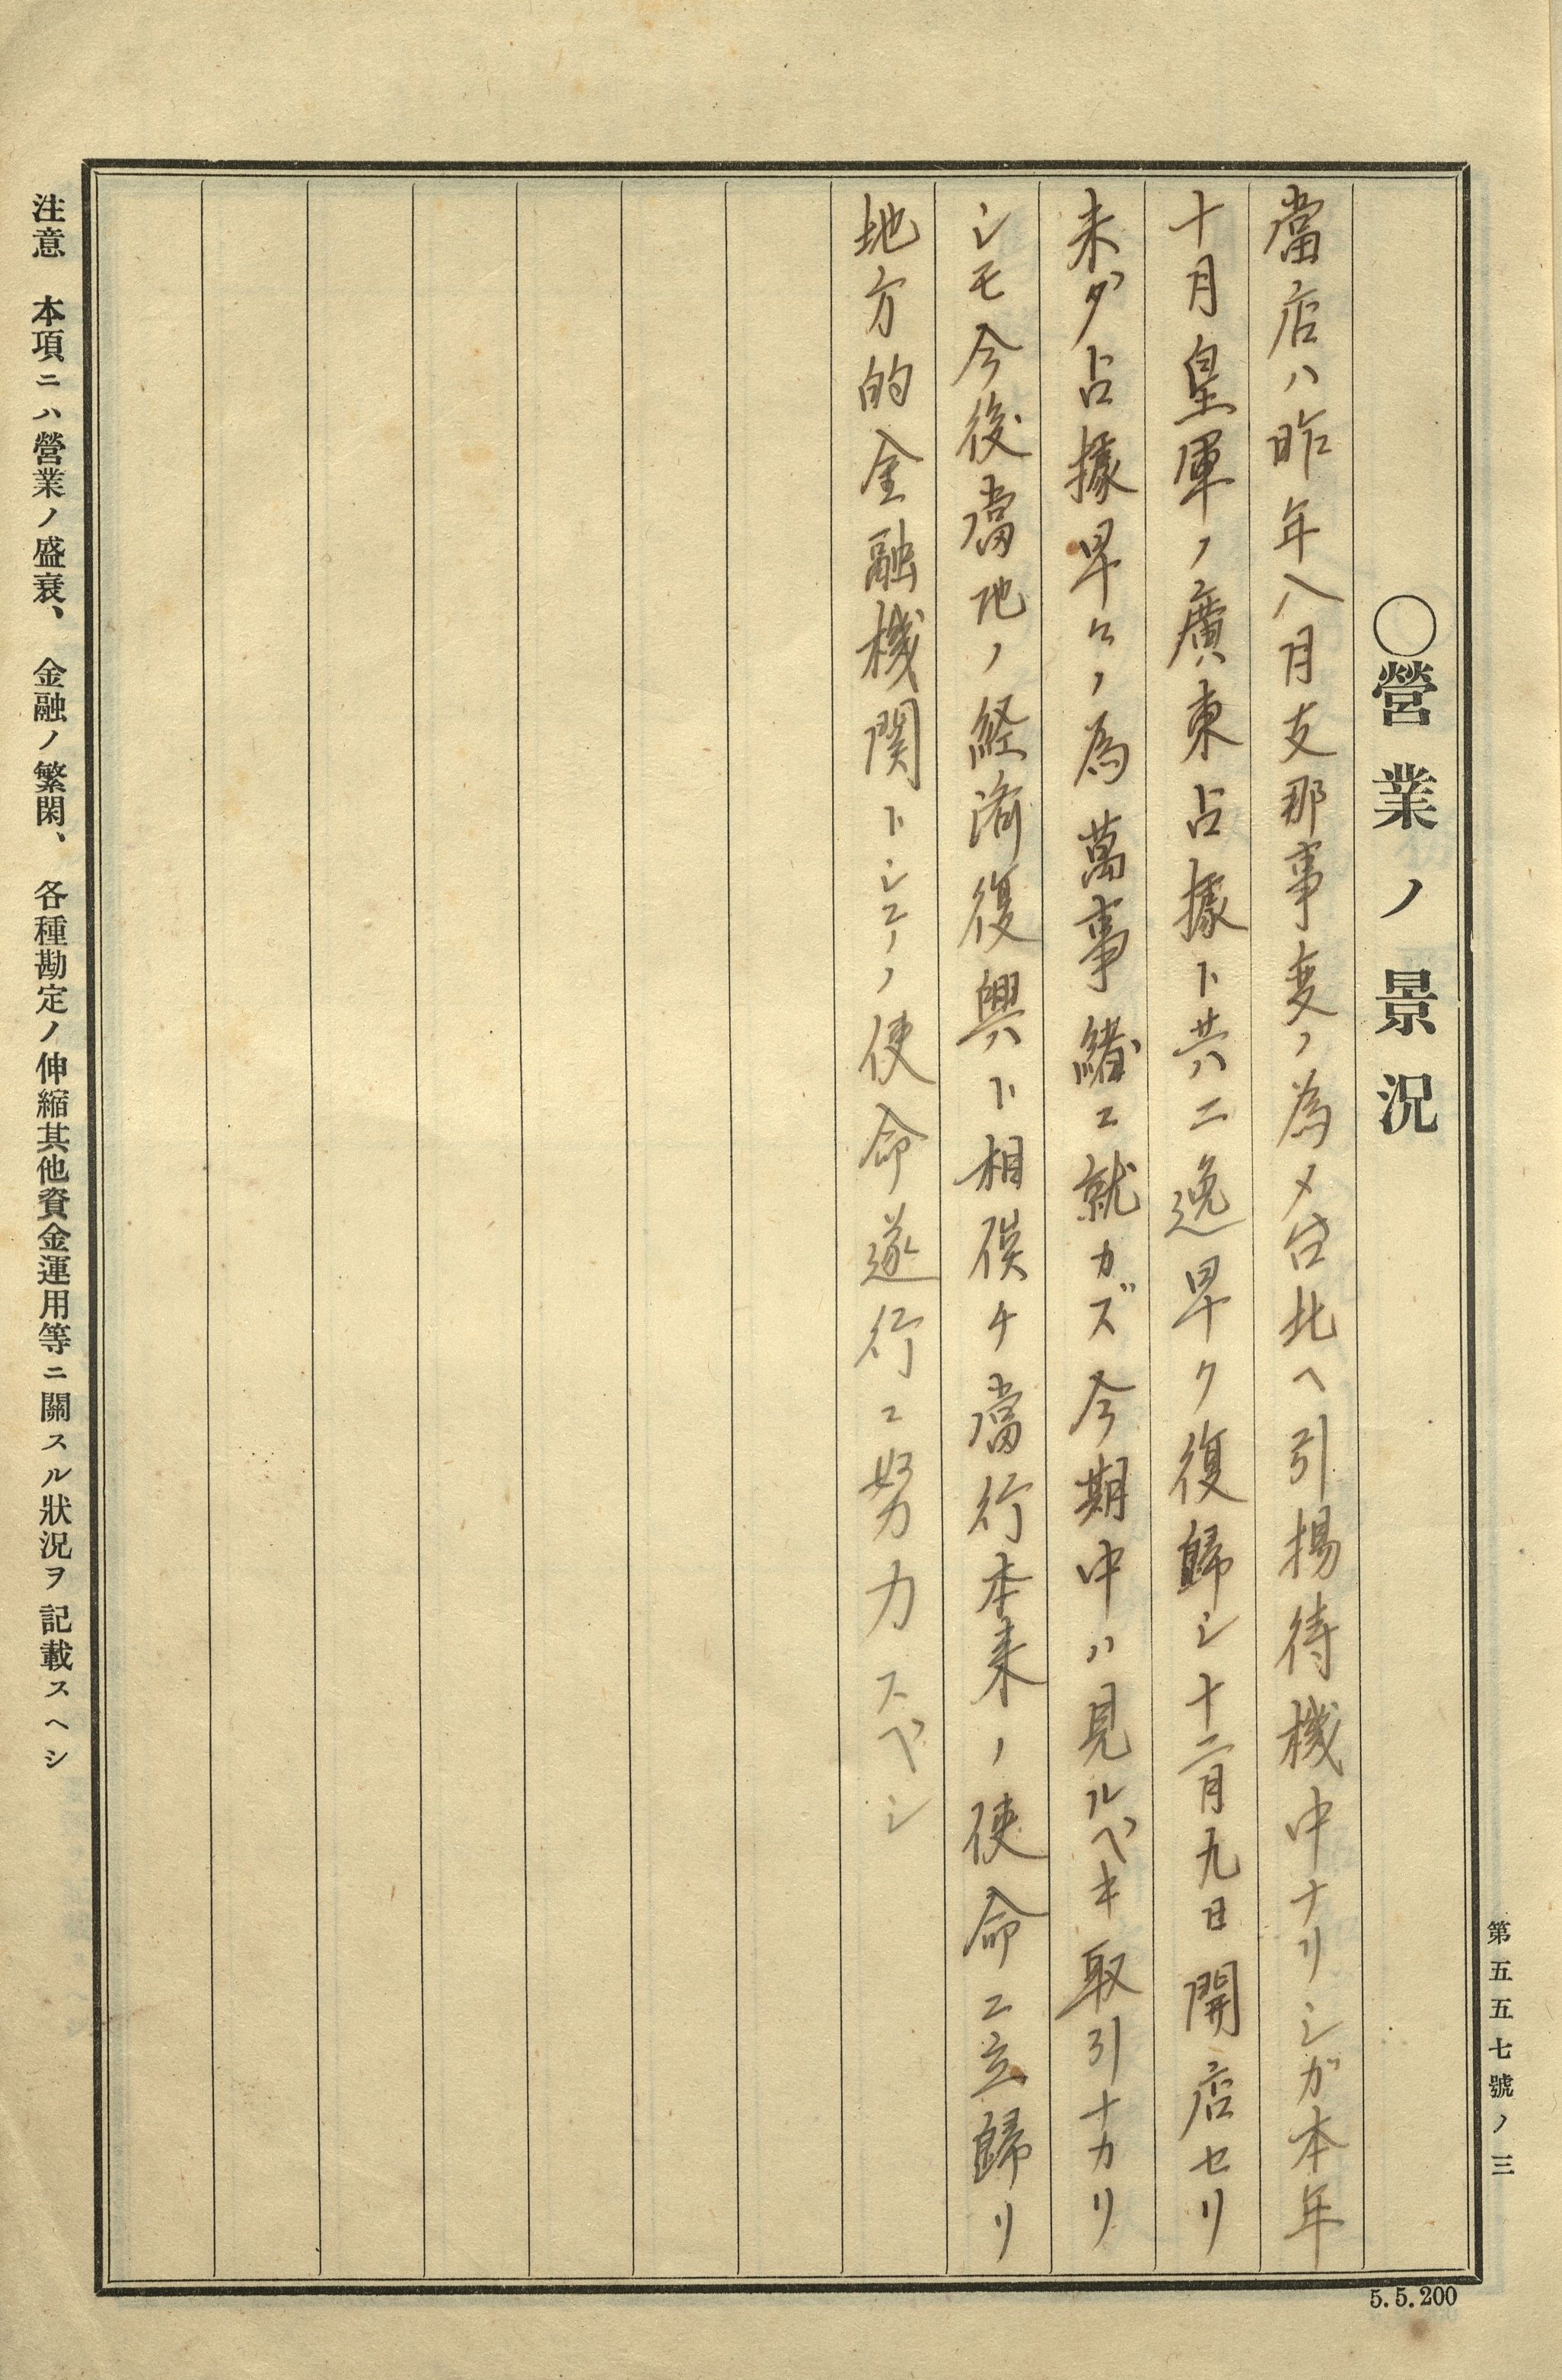 第五五七號ノ三
○營業ノ景況
當店ハ昨年八月支那事変ノ為メ台北ヘ引揚待機中ナリシガ本年
十月皇軍ノ廣東占據ト共ニ逸早ク復歸シ十二月九日開店セリ
未ダ占據早々ノ為萬事緒ニ就カズ今期中ハ見ルベキ取引ナカリ
シモ今後當地ノ経済復興ト相俟チ當行本来ノ使命ニ立歸リ
地方的金融機関トシテノ使命遂行ニ努力スベシ
注意 本項ニハ營業ノ盛衰、金融ノ繁閑、各種勘定ノ伸縮其他資金運用等ニ關スル狀況ヲ記載スヘシ
5.5.200